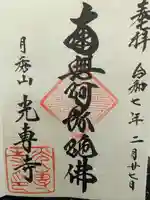 奉拝
令和七年二月廿七日
南無阿弥陀佛
月秀山
光専寺